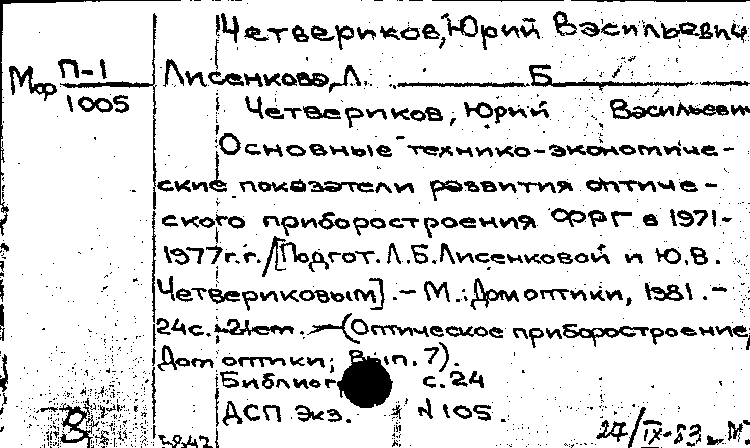 Четвериков, Юрий Васильевич
Мф П-1
1005
Лисенкова, Л. Б
Четвериков, Юрий Васильевич
Основные технико-экономиче-
ские показатели развития оптиче-
ского приборостроения ФРГ в 1971-
1977г.г./[Подгот. Л.Б.Лисенковой и Ю.В.
Четвериковым].- М.:Дом оптики, 1981.-
24с. -21см. -(Оптическое приборостроение/
Дом оптики; Вып. 7).
Библиог с.24
ДСП Экз. N 105.
27/IX-83. М.